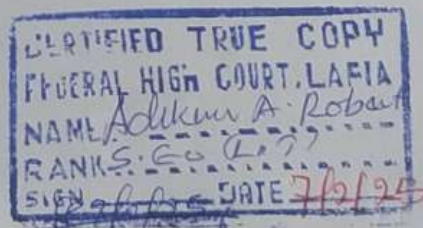 CERTIFIED TRUE COPY
FEDERAL HIGH COURT, LAFIA
NAME A. Robert
RANK
SIGN DATE 7/2/25